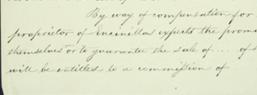 By way of compensation for
proprietor of Encinillas expects the prom
themselves or to guarantee the sale of .... of s
will be entitled to a commission of